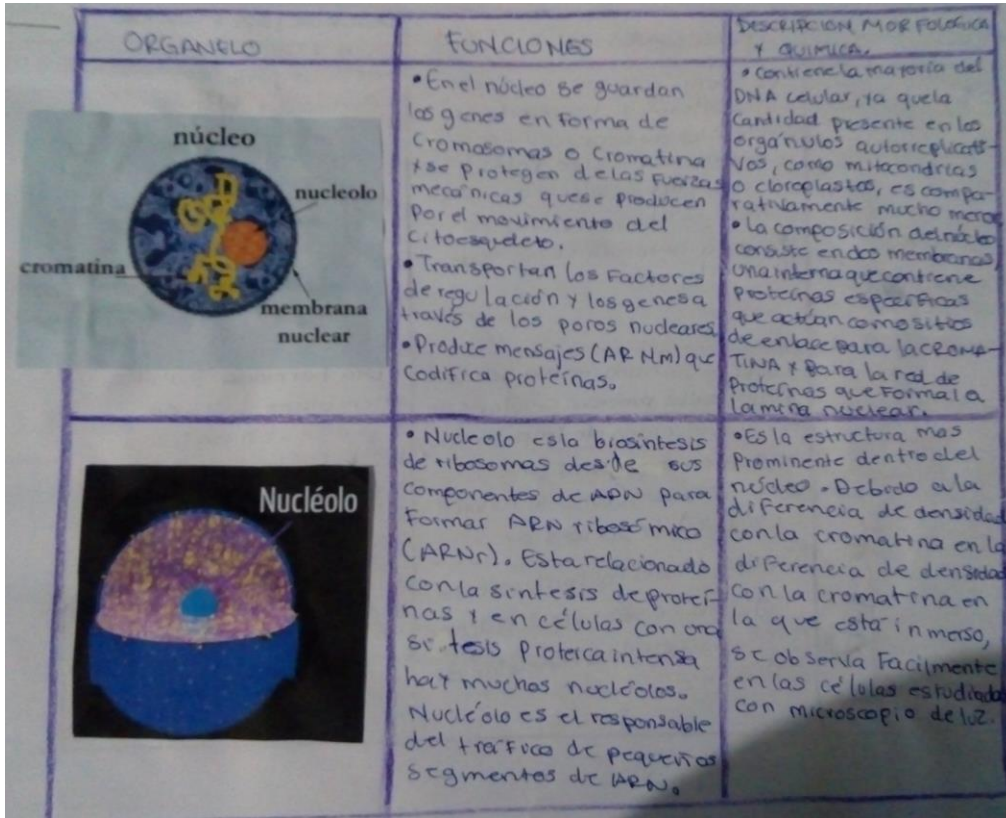 ORGANELO
FUNCIONES
DESCRIPCION MORFOLOGICA
Y QUIMICA.
núcleo
nucleolo
cromatina
membrana
nuclear
• En el núcleo se guardan
los genes en forma de
Cromosomas o Cromatina
y se protegen de las Fuerzas
mecánicas que se producen
Por el movimiento del
Citoesqueleto.
• Transportan los Factores
de regulación y los genes a
través de los poros nucleares
• Produce mensajes (ARNm) que
codifica proteínas.
• Contiene la mayoría del
DNA celular, ya que la
cantidad presente en los
orgánulos autorreplicati-
vos, como mitocondrias
o cloroplastos, es compa-
rativamente mucho menor
• La composición del núcleo
consiste en dos membranas,
una interna que contiene
proteínas específicas
que actúan como sitios
de enlace para la CROMA-
TINA y para la red de
Proteínas que Forma la
lamina nuclear.
Nucléolo
• Nucleolo es la biosintesis
de ribosomas desde sus
componentes de ADN para
Formar ARN ribosómico
(ARNr). Esta relacionado
con la sintesis de proteí-
nas y en células con una
síntesis proteica intensa
hay muchos nucléolos.
Nucléolo es el responsable
del tráfico de pequeños
segmentos de ARN.
• Es la estructura mas
Prominente dentro del
núcleo. Debido a la
diferencia de densidad
con la cromatina en la
diferencia de densidad
con la cromatina en
la que está inmerso,
se observa Facilmente
en las células estudiadas
con microscopio de luz.